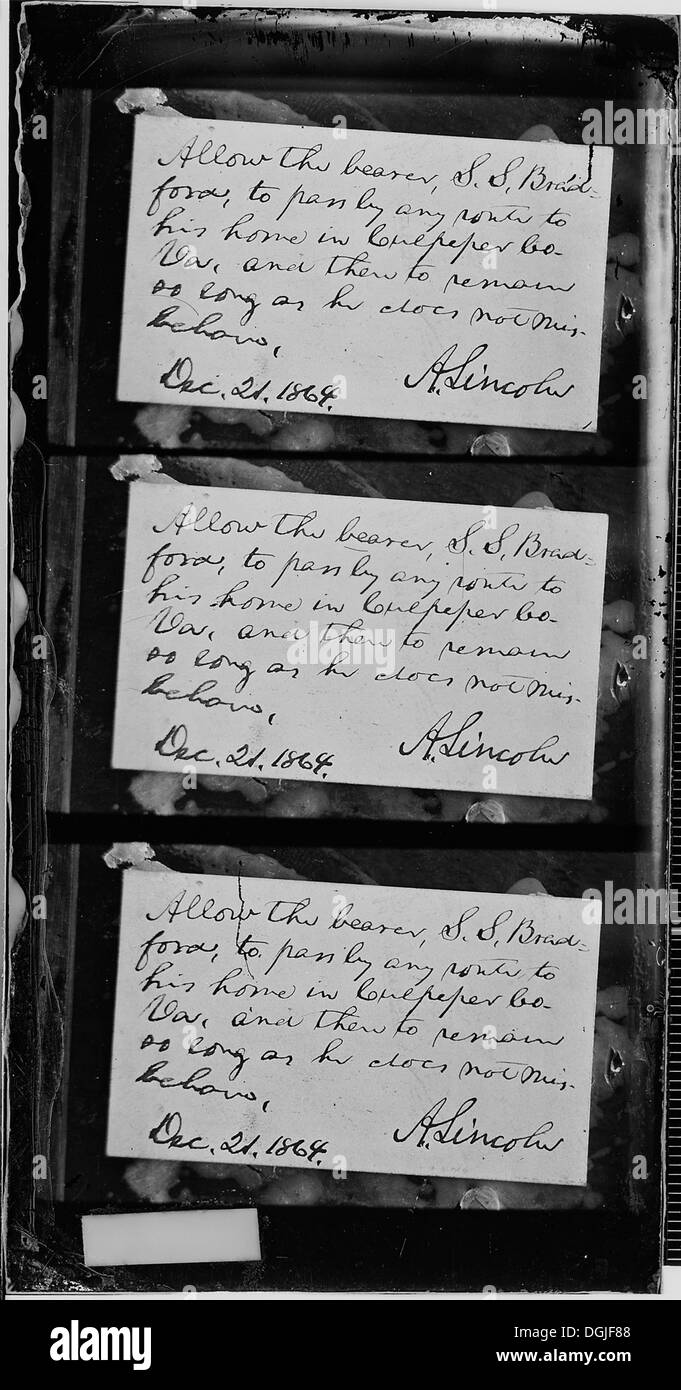 Allow the bearer, S. S. Brad=
ford, to pass by any route to
his home in Culpeper Co.
Va, and then to remain
so long as he does not mis-
behave,
Dec. 21. 1864.
A. Lincoln
Allow the bearer, S. S. Brad=
ford, to pass by any route to
his home in Culpeper Co.
Va, and then to remain
so long as he does not mis-
behave,
Dec. 21. 1864.
A. Lincoln
alamy
Allow the bearer, S. S. Brad=
ford, to pass by any route to
his home in Culpeper Co.
Va, and then to remain
so long as he does not mis-
behave,
Dec. 21. 1864.
A. Lincoln
alamy
Image ID: DGJF88
www.alamy.com